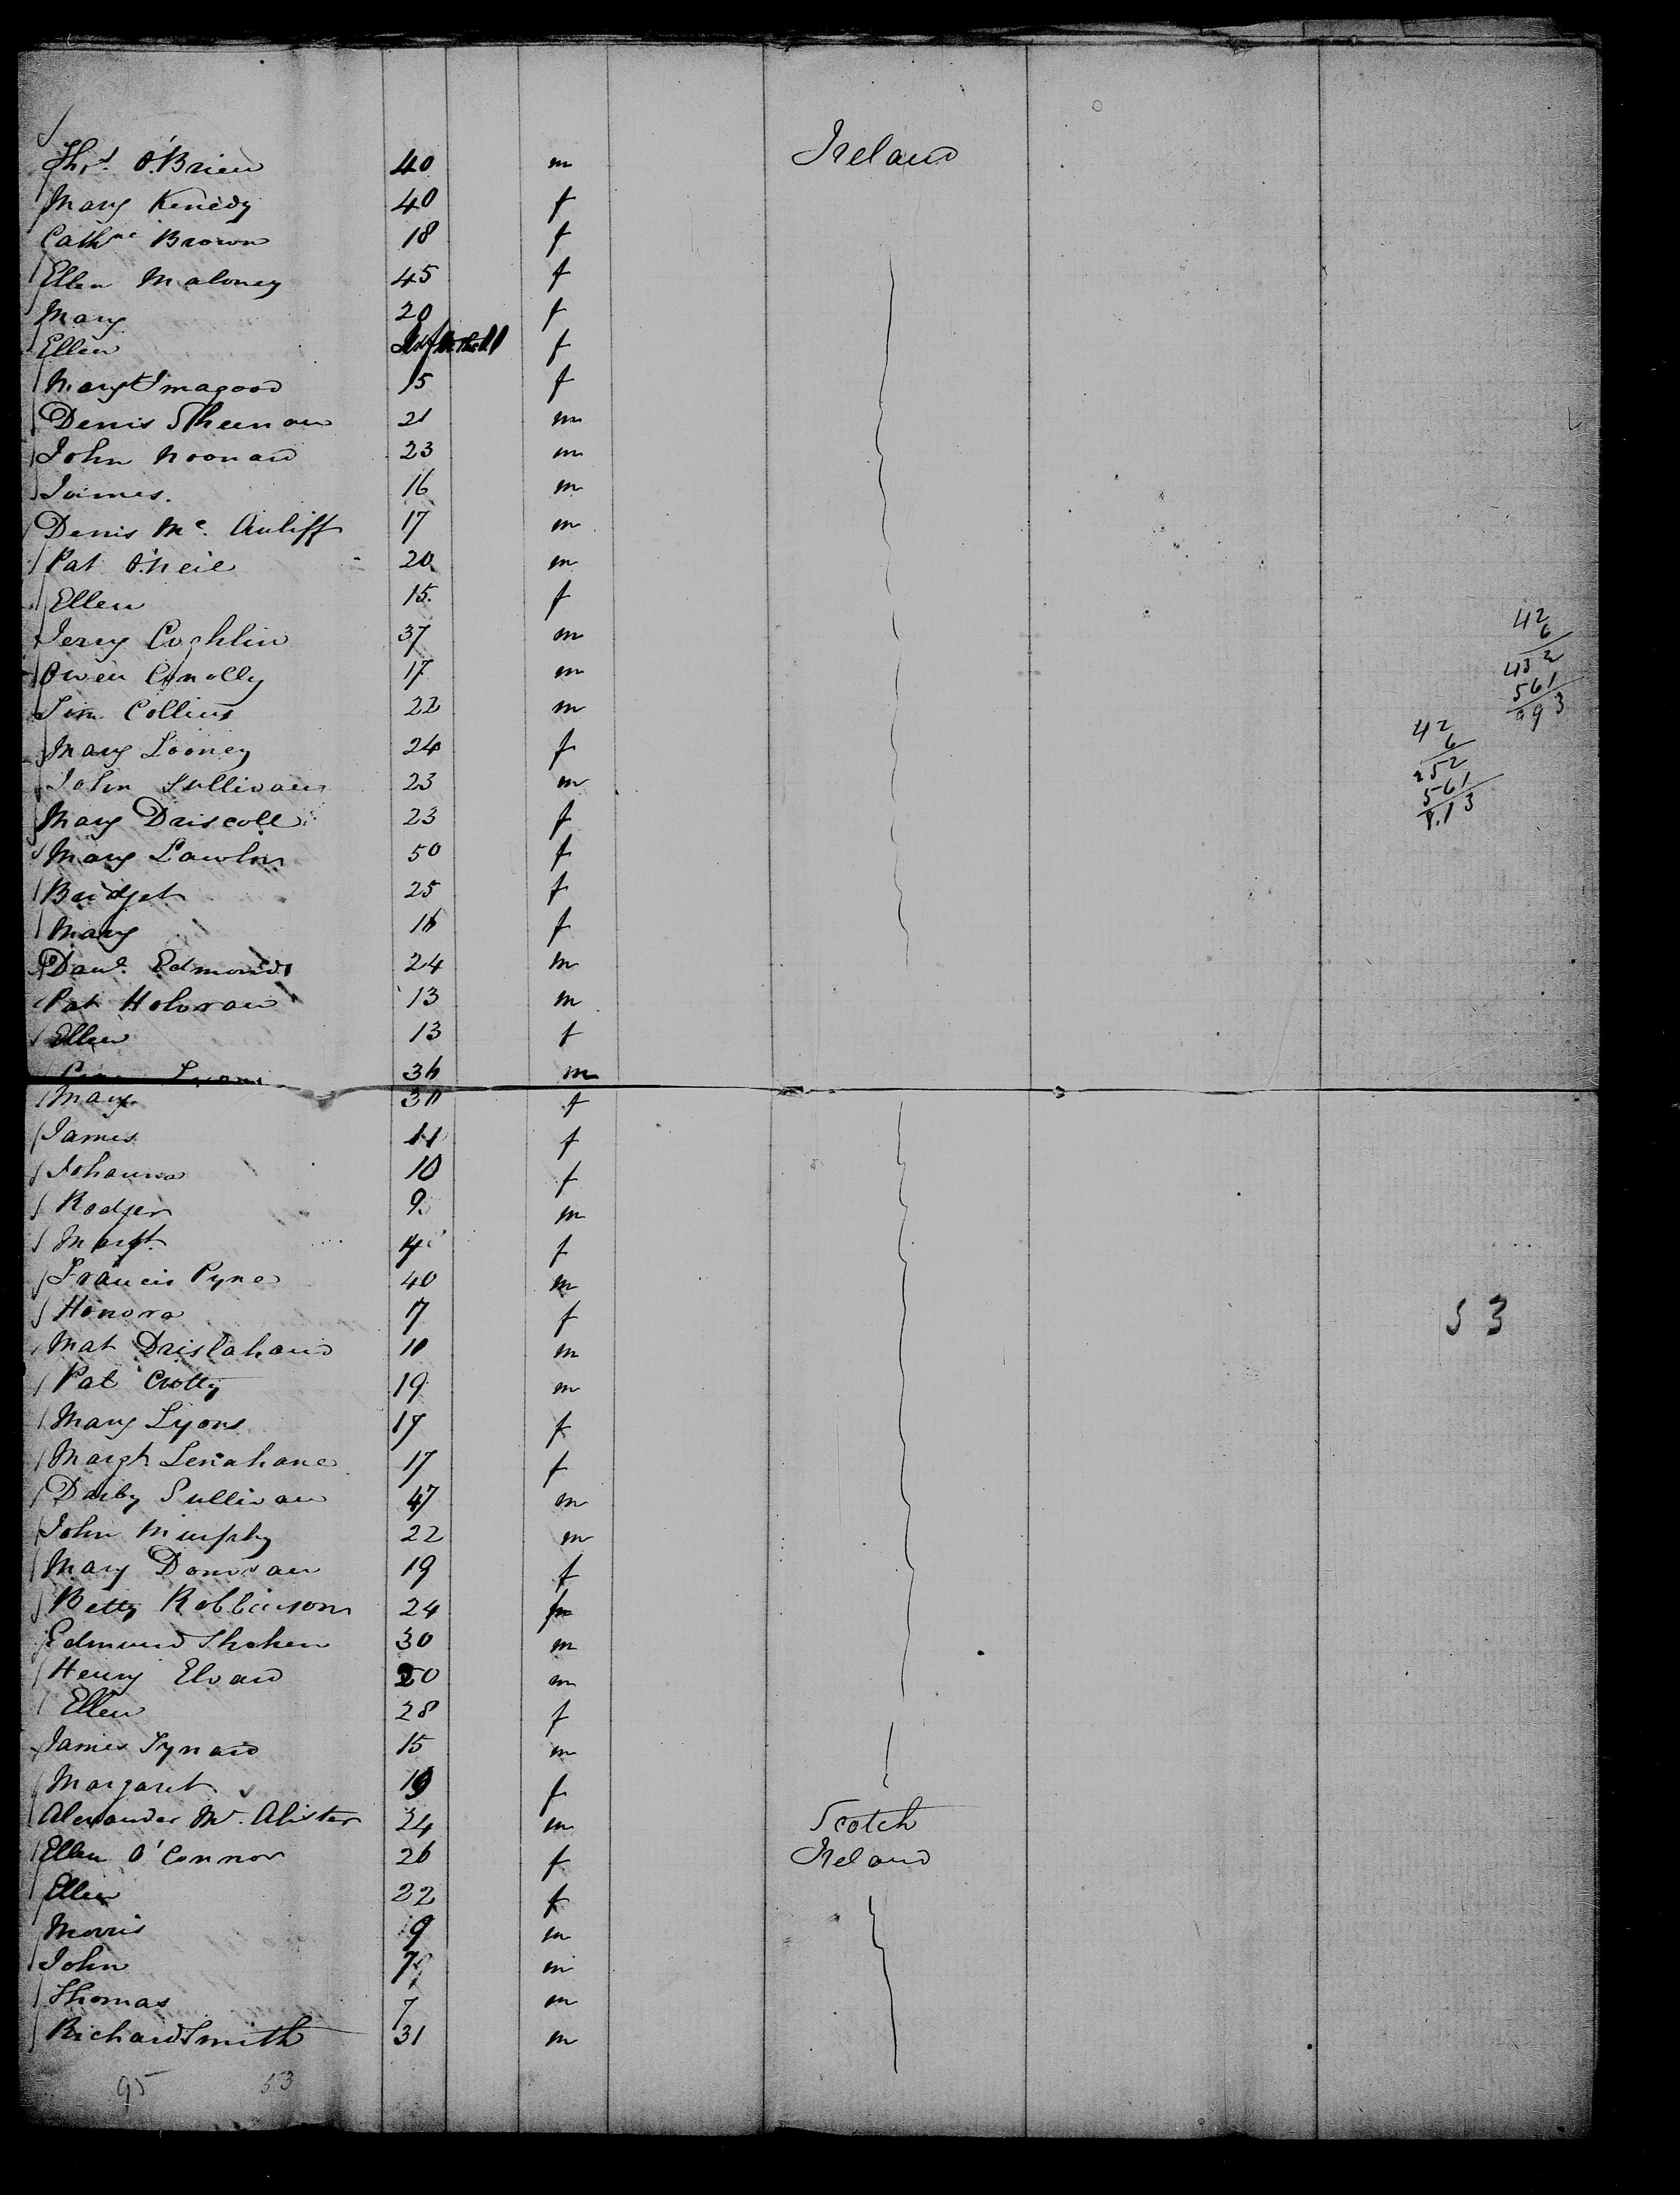 Thos. O'Brien 40 m Ireland
Mary Kenedy 40 f
Cathne Brown 18 f
Ellen Maloney 45 f
Mary 20 f
Ellen f
15 f
Denis Sheenan 21 m
John Noonan 23 m
James. 16 m
Denis Mc. Auliff 17 m
Pat O'Neil 20 m
Ellen 15. f
Jerry Coghlin 37 m
Owen Conolly 17 m
Tim Collins 22 m
Mary Looney 24 f
John Sullivan 23 m
Mary Driscoll 23 f
Mary Lawlor 50 f
Bridget 25 f
Mary 16 f
Danl. Edmonds 24 m
Pat Holoran 13 m
Ellen 13 f
Lyons 36 m
Mary 30 f
James 11 f
Johanna 10 f
Rodger 9 m
Margt. 4 f
Francis Pyne 40 m
Honora 17 f
Mat Drislahand 10 m
Pat Crotty 19 m
Mary Lyons 17 f
Margt Lenahane 17 f
Darby Sullivan 47 m
John Murphy 22 m
Mary Donovan 19 f
Betty Robbinson 24 f
Edmund 30 m
Henry Eloard 20 m
Ellen 28 f
James Tynard 15 m
Margaret 19 f
Alexander Mc. Alister 24 m Scotch
Ellen O'Connor 26 f Ireland
Ellen 22 f
Morris 9 m
John 7 m
Thomas 7 m
Richard Smith 31 m
95 53
42
6
432
561
993
42
6
252
561
8.13
53